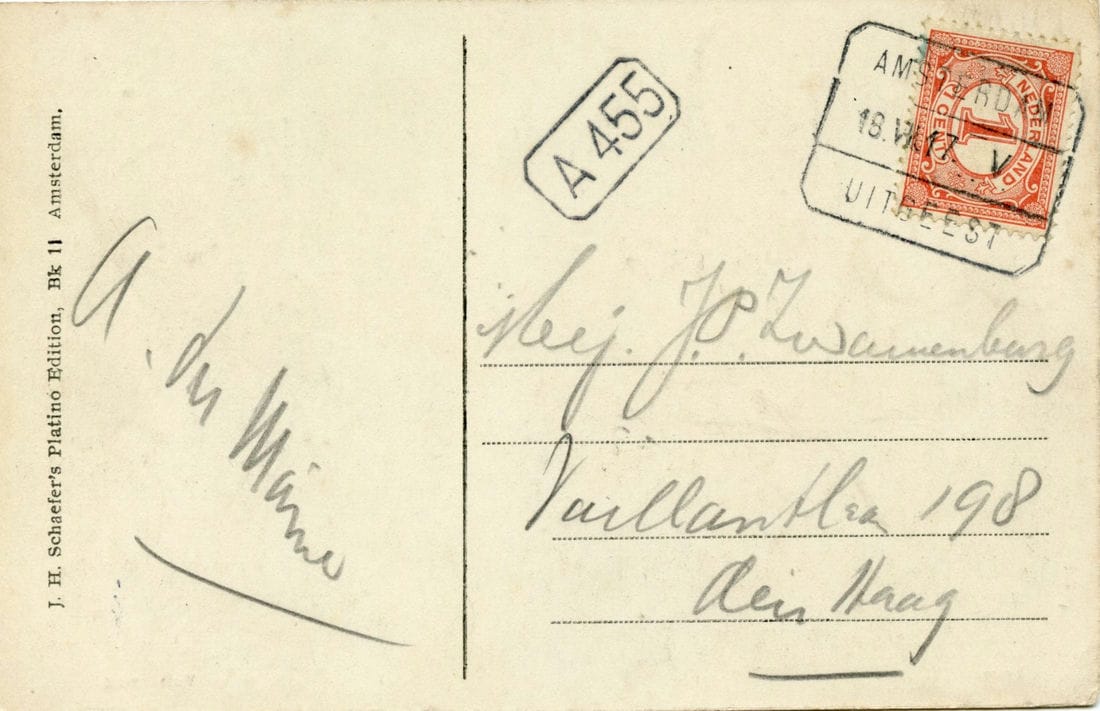 J. H. Schaefer's Platino Edition, Bk 11 Amsterdam.
A 455
AMSTERDAM
18.VII.17. V
UITGEEST
NEDERLAND
1
1 CENT 1
A. der
Mej. J. P. Zwanenburg
Vaillantlaan 198
den Haag